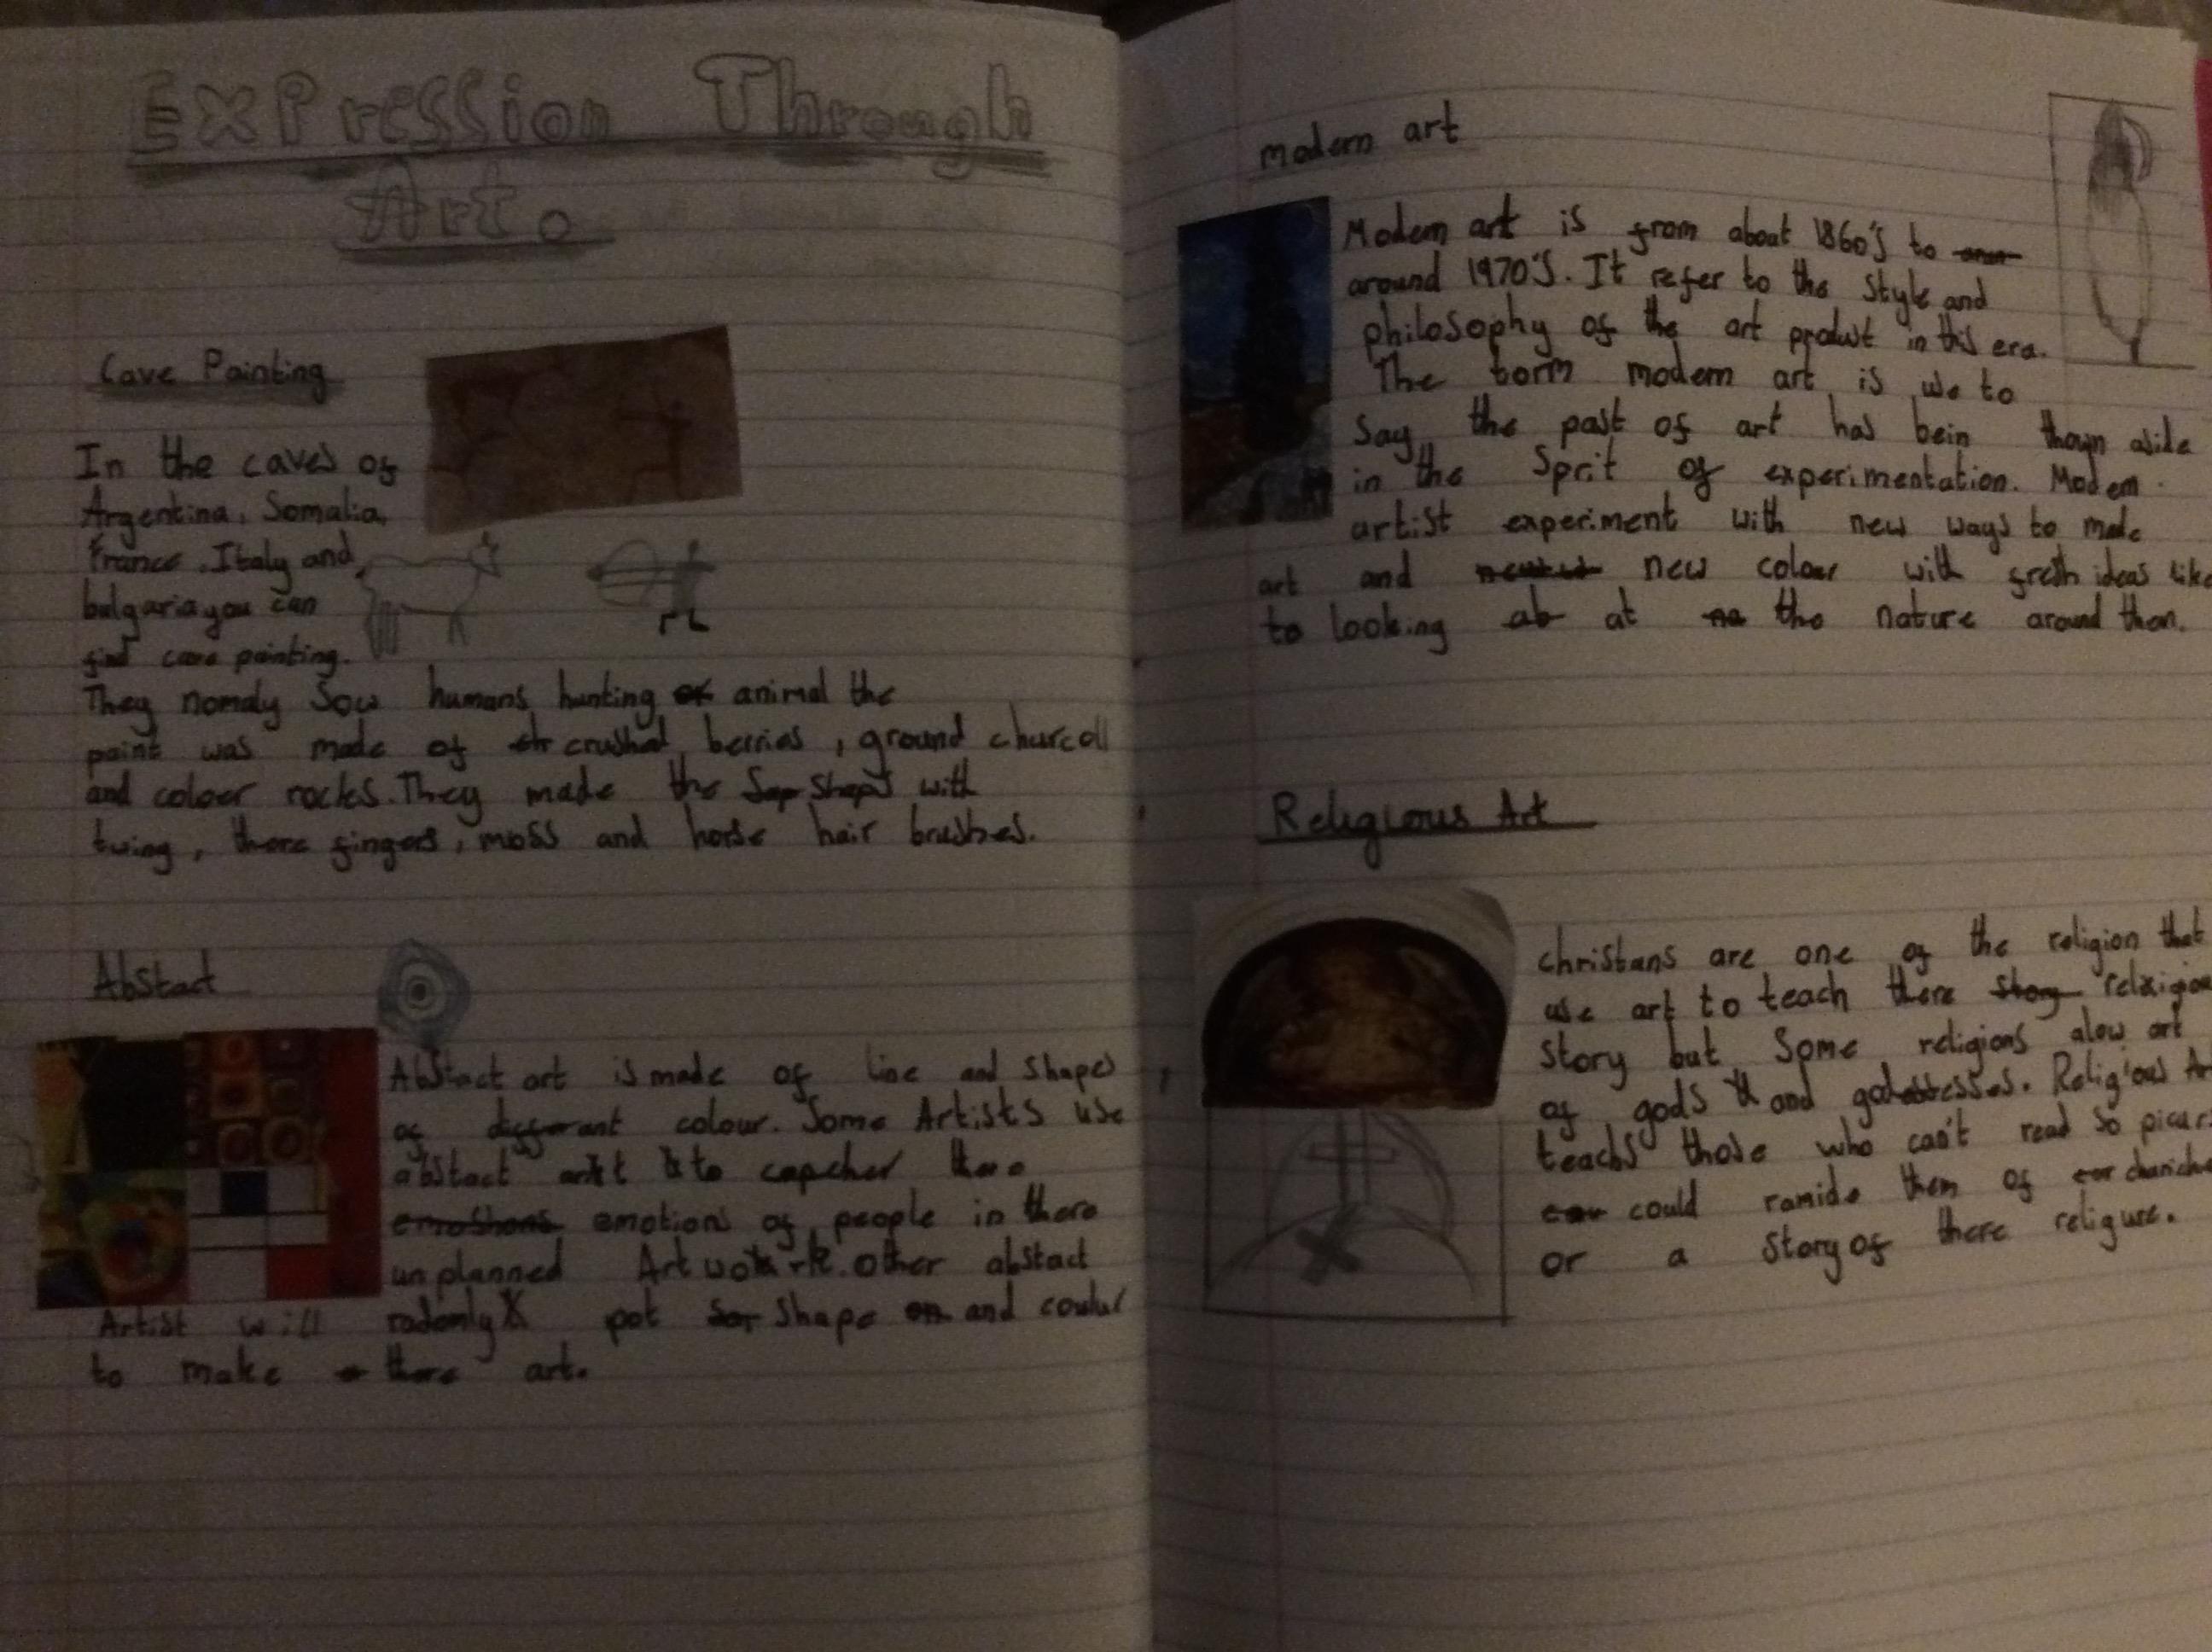 Expression Through
Art.
Cave Painting
In the caves of
Argentina, Somalia,
France, Italy and
bulgaria you can
find cave painting.
They nomaly Sow humans hunting animal the
paint was made of crushed berries, ground charcoll
and colour rocks. They made the Shaps with
twing, there fingers, moss and horse hair brushes.
Abstact
Abstact art is made of line and shapes
of different colour. Some Artists use
abstact art to capcher there
emoshons emotions of people in there
unplanned Art work. other abstact
Artist will radomly pot shape and coulur
to make there art.
modern art
Modern art is from about 1860's to
around 1970's. It refer to the style and
philosophy of the art product in this era.
The term modern art is use to
Say the past of art has bein thown aside
in the Sprit of experimentation. Modern
artist experiment with new ways to made
art and new colour with fresh ideas like
to looking at the nature around them.
Religious Art
christans are one of the religion that
use art to teach there story
story but Some religions alow art
of gods and goddesses. Religious
teachs those who can't read so
could ramide them of
or a story of there religure.